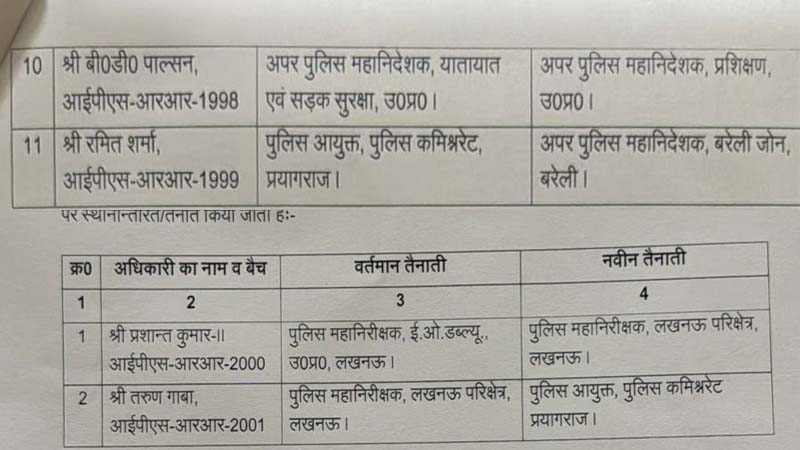 10 श्री बी0डी0 पाल्सन, अपर पुलिस महानिदेशक, यातायात अपर पुलिस महानिदेशक, प्रशिक्षण,
आईपीएस-आरआर-1998 एवं सड़क सुरक्षा, उ0प्र0। उ0प्र0।
11 श्री रमित शर्मा, पुलिस आयुक्त, पुलिस कमिश्नरेट, अपर पुलिस महानिदेशक, बरेली जोन,
आईपीएस-आरआर-1999 प्रयागराज। बरेली।
पर स्थानान्तरित/तैनात किया जाता हैः-
क्र0 अधिकारी का नाम व बैच वर्तमान तैनाती नवीन तैनाती
1 2 3 4
1 श्री प्रशान्त कुमार-II पुलिस महानिरीक्षक, ई.ओ.डब्ल्यू., पुलिस महानिरीक्षक, लखनऊ परिक्षेत्र,
आईपीएस-आरआर-2000 उ0प्र0, लखनऊ। लखनऊ।
2 श्री तरुण गाबा, पुलिस महानिरीक्षक, लखनऊ परिक्षेत्र, पुलिस आयुक्त, पुलिस कमिश्नरेट
आईपीएस-आरआर-2001 लखनऊ। प्रयागराज।